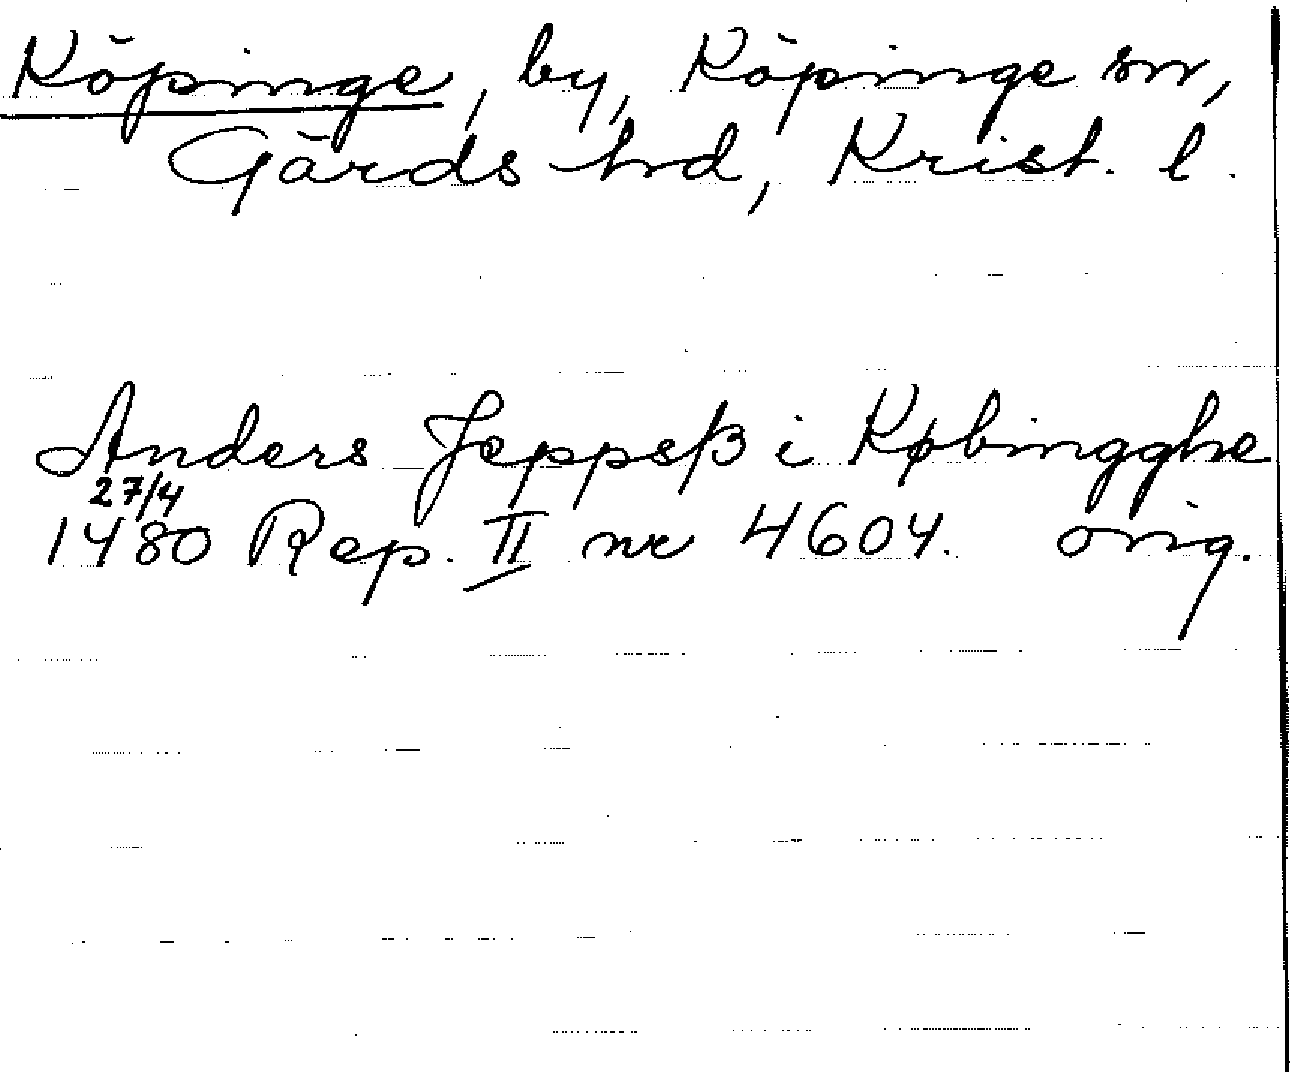 Köpinge, by, Köpinge sn,
Gärds hrd, Krist. l.
Anders Jeppsß i Købingghe
27/4
1480 Rep. II nr 4604. orig.